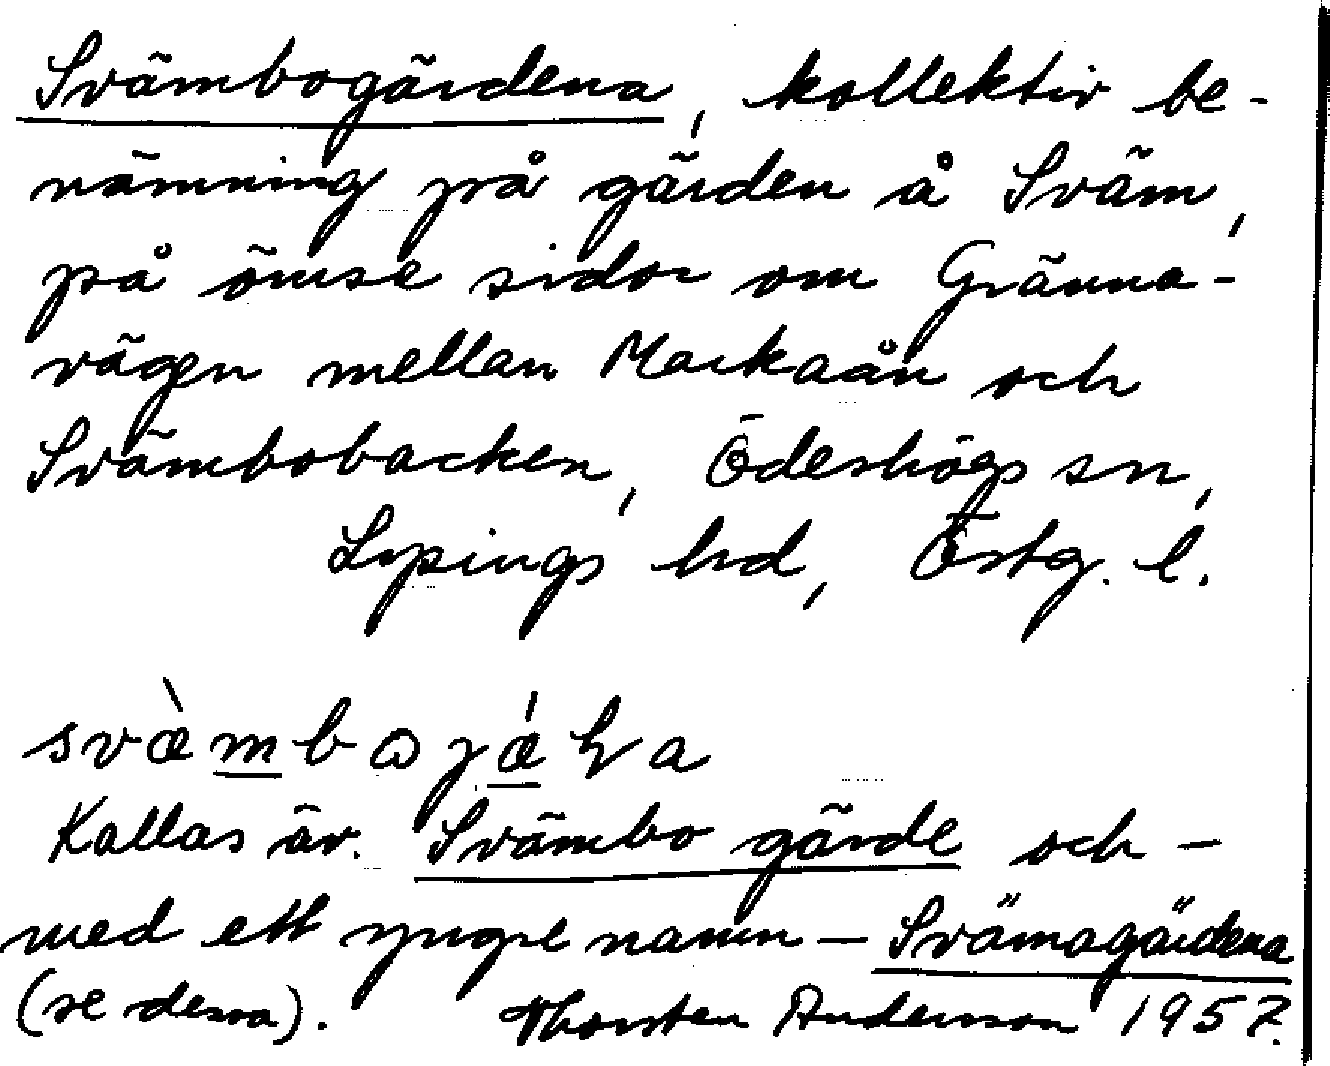 Svämbogärdena, kollektiv be-
nämning på gärden å Sväm,
på ömse sidor om Gränna-
vägen mellan Markaån och
Svämbobacken, Ödeshögs sn,
Lysings hd, Östg. l.
Kallas äv. Svämbo gärde och –
med ett yngre namn – Svämagärdena
(se dessa). Thorsten Andersson 1957.